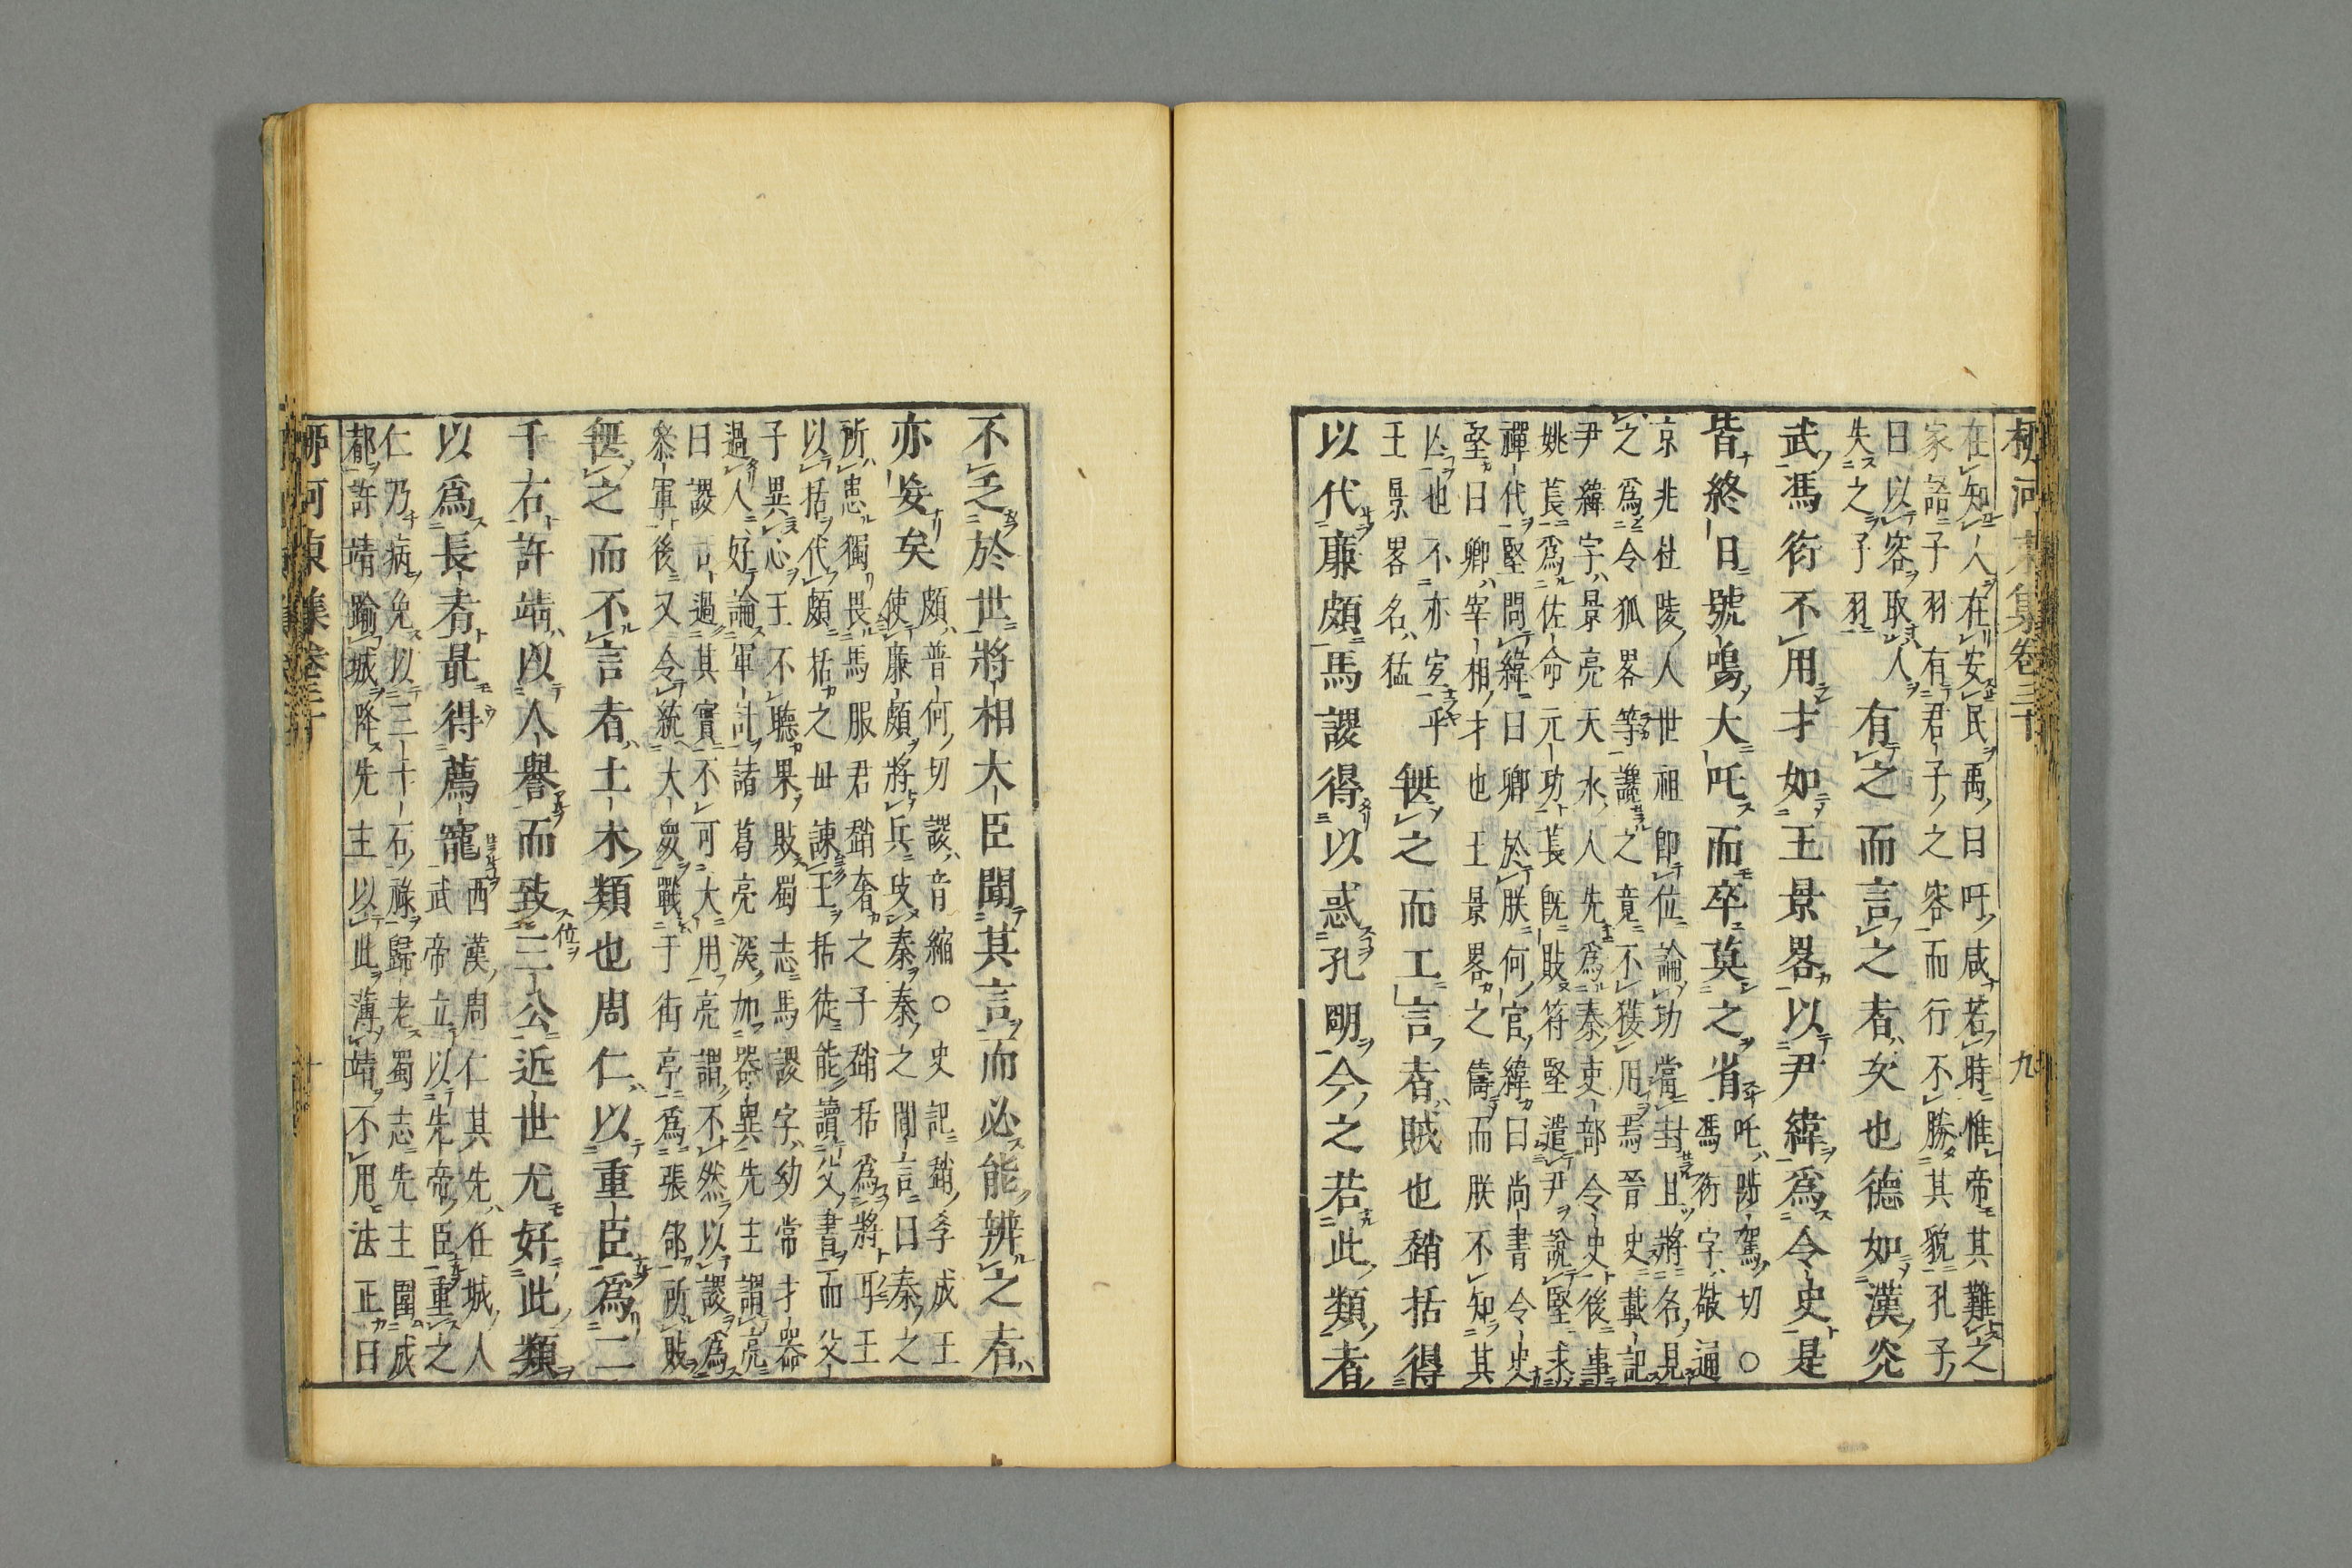 柳河東集卷三十 九
在知人在安民禹曰吁咸若時惟帝其難之
家語子羽有君子之容而行不勝其貌孔子
曰以容取人
失之子羽
有之而言之者次也德如漢光
武馮衍不用才如王景畧以尹緯爲令史是
皆終日號鳴大吒而卒莫之省
吒陟駕切○
馮衍字敬通
京兆杜陵人世祖即位論功當封且將召見
之爲令狐畧等讒之竟不獲用焉晉史載記
尹緯字景亮天水人先爲秦吏部令史後事
姚萇爲佐命元功萇既敗苻堅遣尹說堅求
禪代堅問緯曰卿於朕何官緯曰尚書令史
堅曰卿宰相才也王景畧之儔而朕不知其
亾也不亦宜乎
王景畧名猛
無之而工言者賊也趙括得
以代廉頗馬謖得以惑孔明今之若此類者
不乏於世將相大臣聞其言而必能辨之者
亦妄矣
頗普何切謖音縮○史記趙孝成王
使廉頗將兵攻秦秦之間言曰秦之
所患獨畏馬服君趙奢之子趙括爲將耳王
以括代頗括之母諫王括徒能讀父書而父
子異心王不聽果敗蜀志馬謖字幼常才器
過人好論軍計諸葛亮深加器異先主謂亮
曰謖言過其實不可大用亮謂不然以謖爲
叅軍後又令統大衆戰于街亭爲張郃所敗
無之而不言者土木類也周仁以重臣爲二
千石許靖以人譽而致三公近世尤好此類
以爲長者最得薦寵
西漢周仁其先任城人
武帝立以先帝臣重之
仁乃病免以二千石祿歸老蜀志先主圍成
都許靖踰城降先主以此薄靖不用法正曰
柳河東集卷三十 十